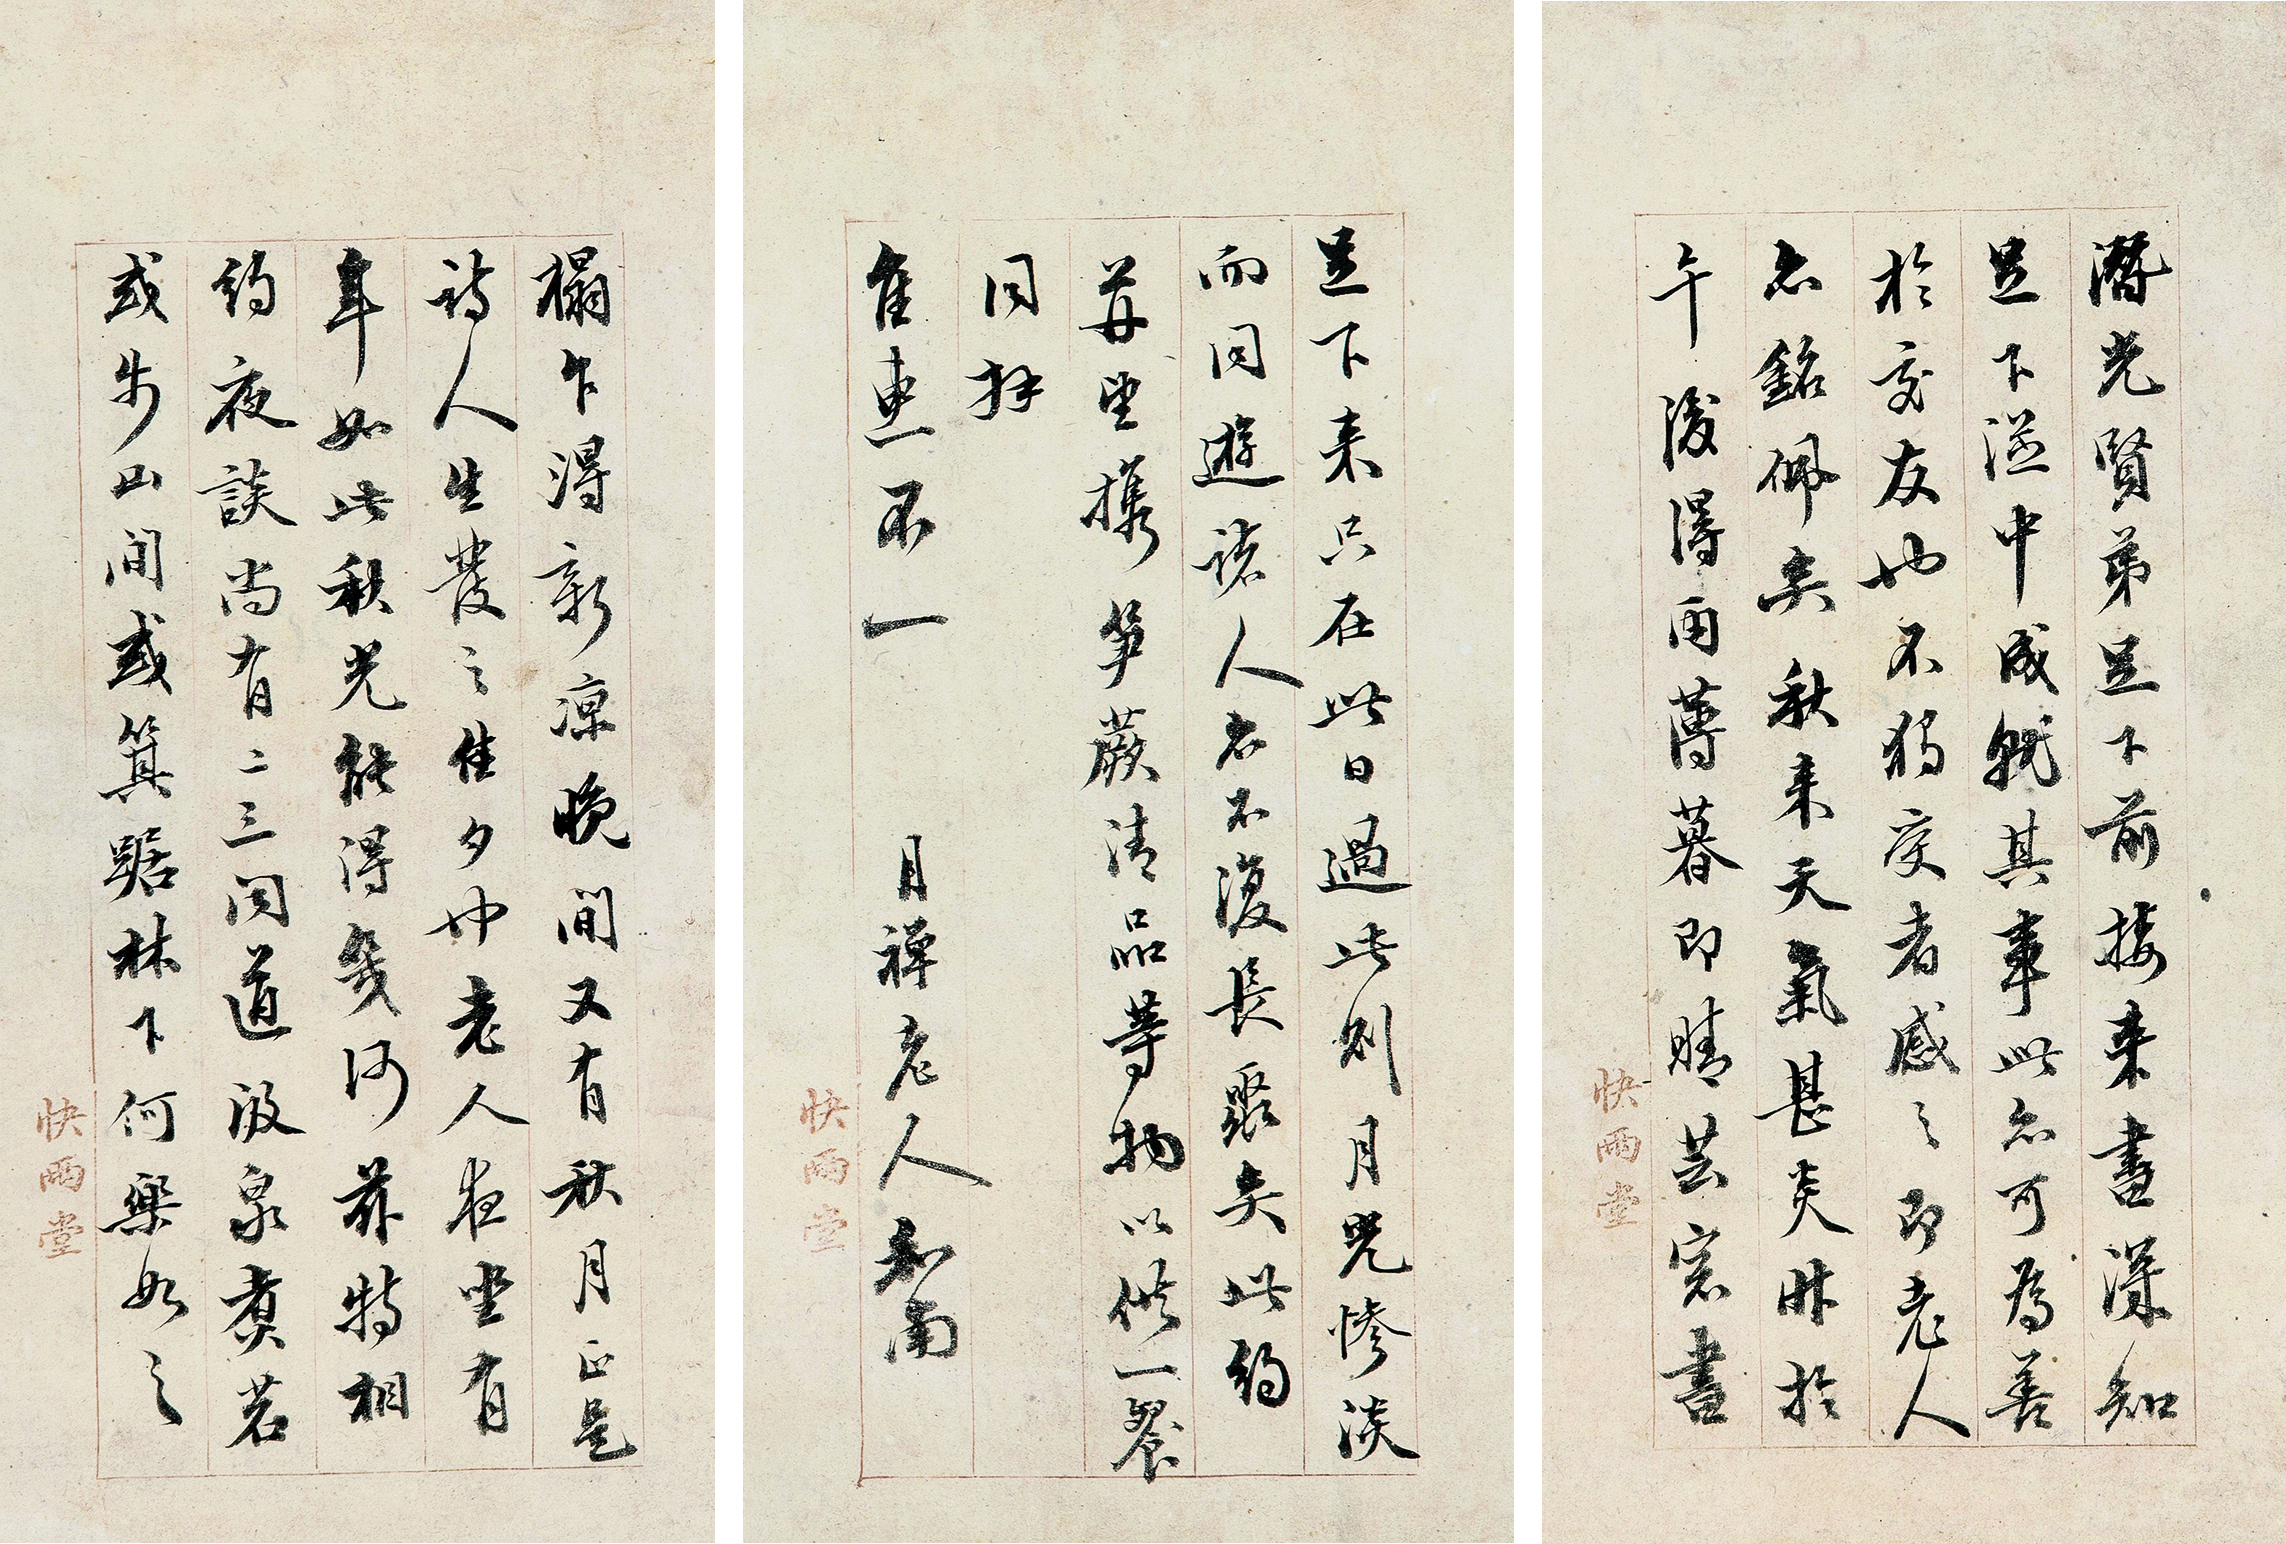 潛光賢弟足下前接来書深知
足下從中成就其事此亦可為善
於交友也不獨交者感之即老人
亦銘佩矣秋来天氣甚炎昨於
午後得雨薄暮即晴芸窓書
快雨堂
榻乍得新凉晚間又有秋月正是
詩人生發之佳夕也老人夜坐有
年如此秋光能得幾何茲特相
約夜談尚有二三同道汲泉煮茗
或步山間或箕踞林下何樂如之
快雨堂
足下来只在此日過此則月光惨淡
而同遊諸人亦不復長聚矣此約
并望攜筍蕨清品等物以供一餐
同拜
佳惠不一 月禅老人和南
快雨堂